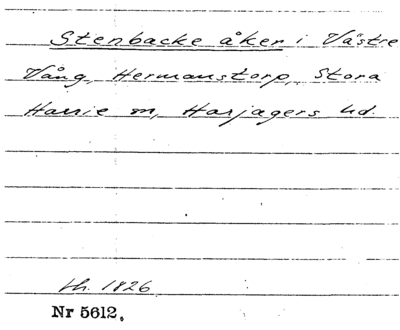 Stenbacke åker i Västre
Vång, Hermanstorp, Stora
Harrie m, Harjagers hd.
th. 1826
Nr 5612.